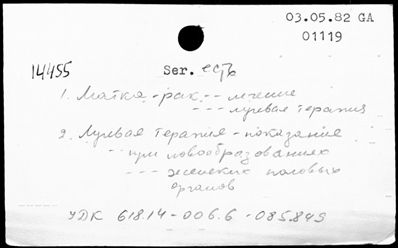 03.05.82 GA
01119
14455
Ser. есть
1. Матка - рак -- лечение
--- лучевая терапия
2. Лучевая терапия - показание
-- при новообразованиях
--- женских половых
органов
УДК 618.14-006.6-085.849